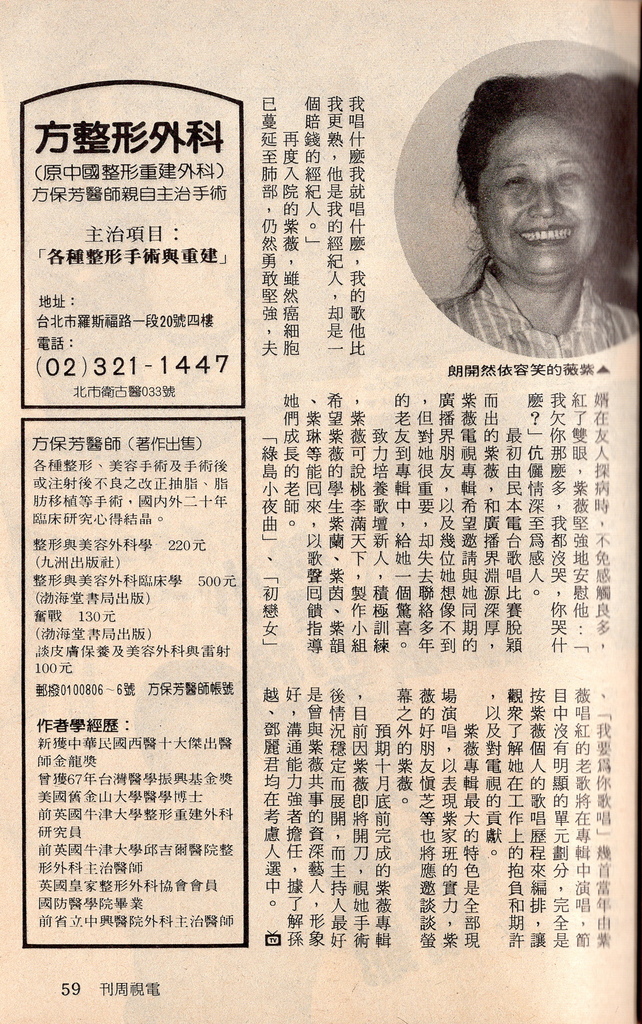 我唱什麼我就唱什麼，我的歌他比
我更熟，他是我的經紀人，却是一
個賠錢的經紀人。」
再度入院的紫薇，雖然癌細胞
已蔓延至肺部，仍然勇敢堅強，夫
▲紫薇的笑容依然開朗
婿在友人探病時，不免感觸良多，
紅了雙眼，紫薇堅強地安慰他：「
我欠你那麼多，我都沒哭，你哭什
麼？」伉儷情深至爲感人。
最初由民本電台歌唱比賽脫穎
而出的紫薇，和廣播界淵源深厚，
紫薇電視專輯希望邀請與她同期的
廣播界朋友，以及幾位她想像不到
，但對她很重要，却失去聯絡多年
的老友到專輯中，給她一個驚喜。
致力培養歌壇新人，積極訓練
，紫薇可說桃李滿天下，製作小組
希望紫薇的學生紫蘭、紫茵、紫韻
、紫琳等能回來，以歌聲回饋指導
她們成長的老師。
「綠島小夜曲」、「初戀女」
、「我要爲你歌唱」幾首當年由紫
薇唱紅的老歌將在專輯中演唱，節
目中沒有明顯的單元劃分，完全是
按紫薇個人的歌唱歷程來編排，讓
觀衆了解她在工作上的抱負和期許
，以及對電視的貢獻。
紫薇專輯最大的特色是全部現
場演唱，以表現紫家班的實力，紫
薇的好朋友愼芝等也將應邀談談螢
幕之外的紫薇。
預期十月底前完成的紫薇專輯
，目前因紫薇即將開刀，視她手術
後情況穩定而展開，而主持人最好
是曾與紫薇共事的資深藝人，形象
好，溝通能力強者擔任，據了解孫
越、鄧麗君均在考慮人選中。
TV
方整形外科
(原中國整形重建外科)
方保芳醫師親自主治手術
主治項目：
「各種整形手術與重建」
地址：
台北市羅斯福路一段20號四樓
電話：
(02)321-1447
北市衛古醫033號
方保芳醫師（著作出售）
各種整形、美容手術及手術後
或注射後不良之改正抽脂、脂
肪移植等手術，國內外二十年
臨床研究心得結晶。
整形與美容外科學 220元
(九洲出版社)
整形與美容外科臨床學 500元
(渤海堂書局出版)
奮戰 130元
(渤海堂書局出版)
談皮膚保養及美容外科與雷射
100元
郵撥0100806～6號 方保芳醫師帳號
作者學經歷：
新獲中華民國西醫十大傑出醫
師金龍獎
曾獲67年台灣醫學振興基金獎
美國舊金山大學醫學博士
前英國牛津大學整形重建外科
研究員
前英國牛津大學邱吉爾醫院整
形外科主治醫師
英國皇家整形外科協會會員
國防醫學院畢業
前省立中興醫院外科主治醫師
59 電視周刊